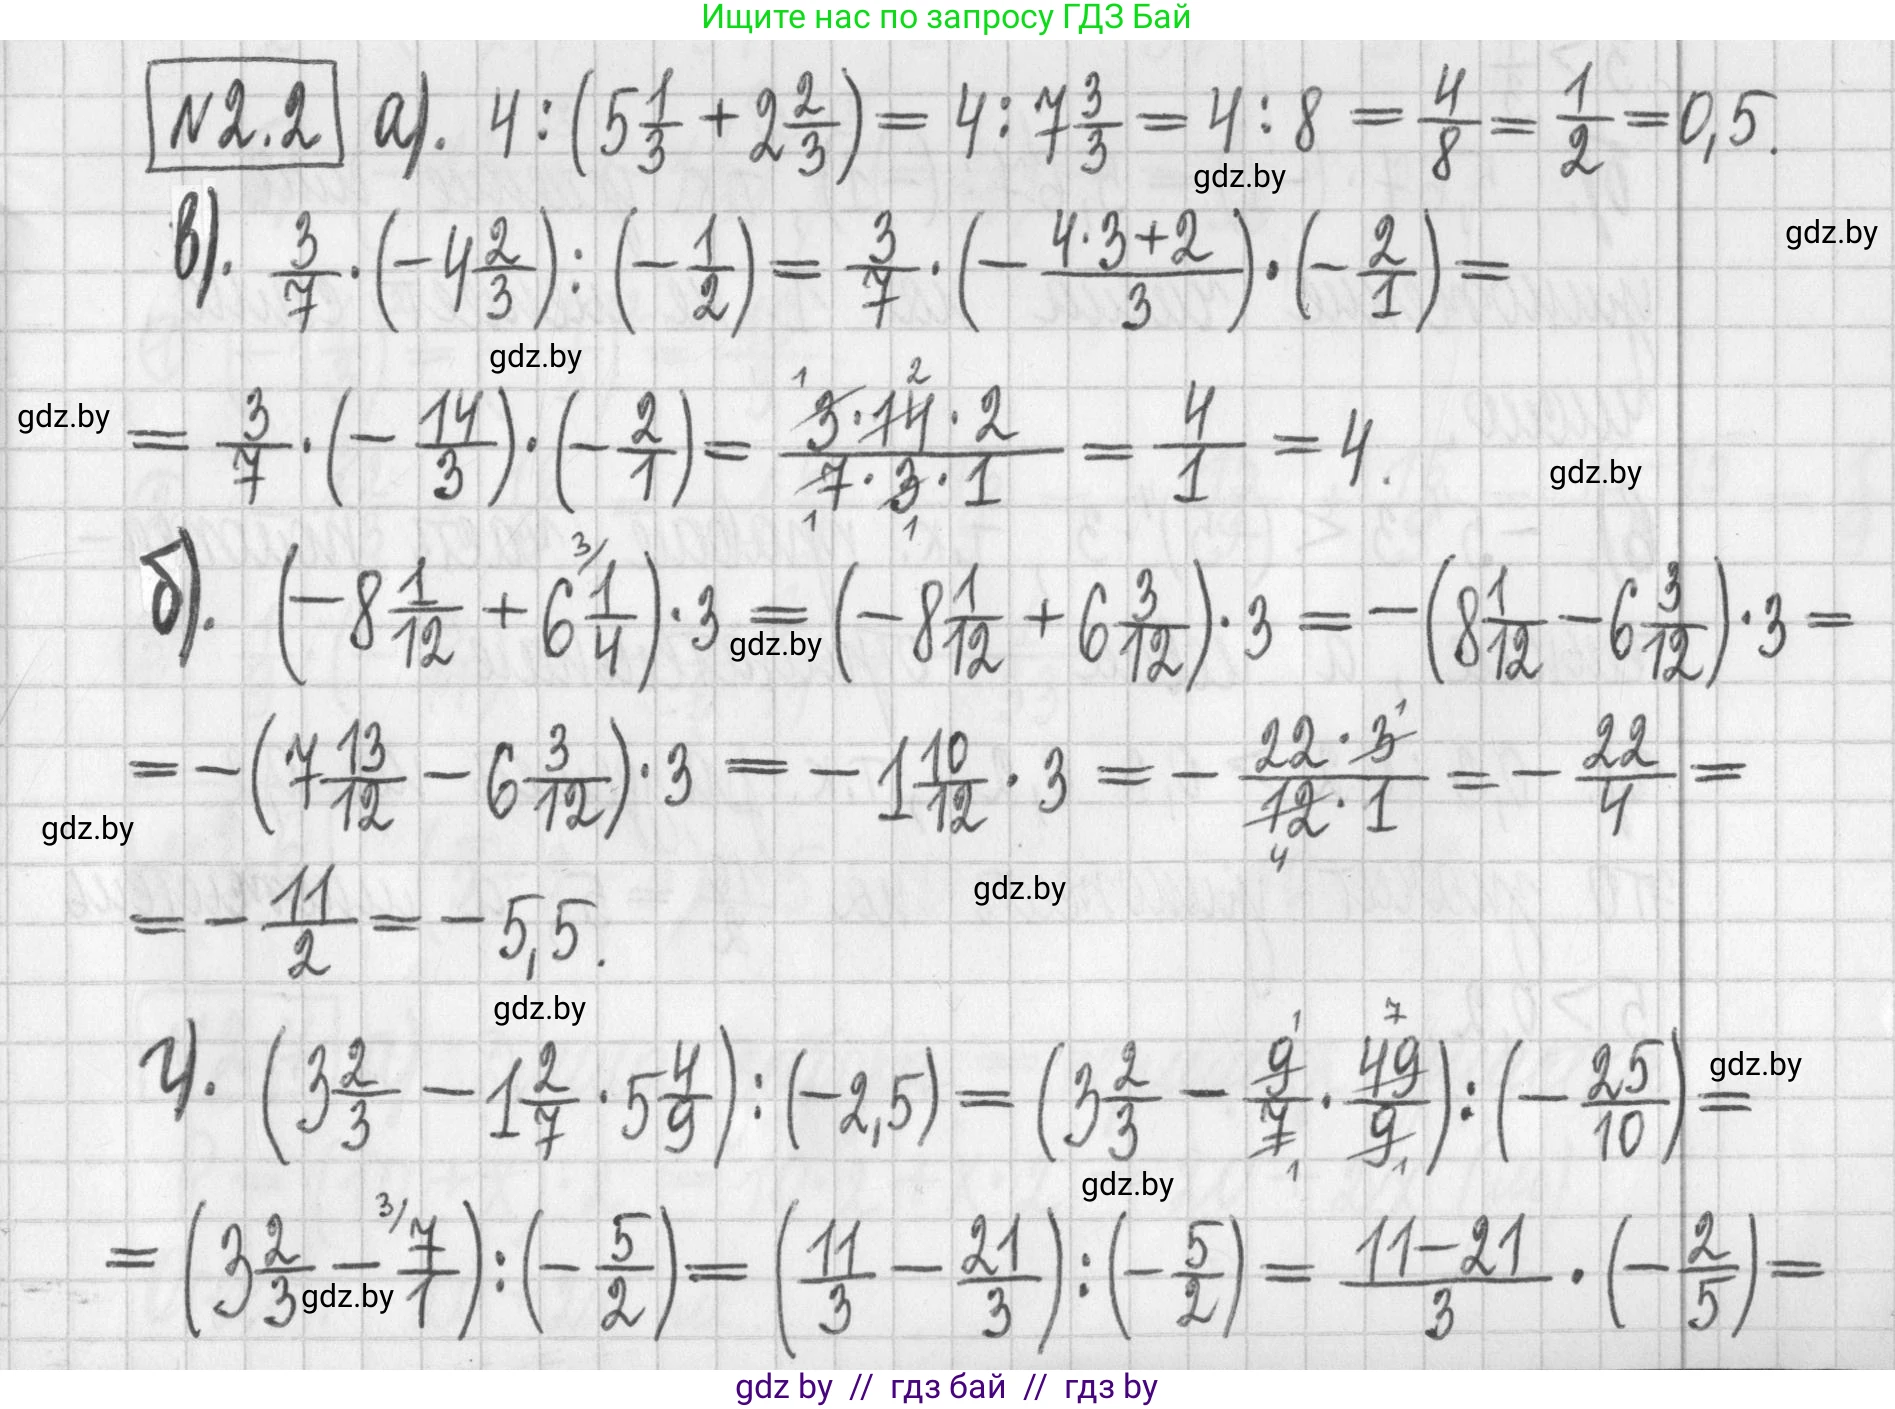 Ищите нас по запросу ГДЗ Бай
№2.2 а). 4 : (5 1/3 + 2 2/3) = 4 : 7 3/3 = 4 : 8 = 4/8 = 1/2 = 0,5.
gdz.by
gdz.by
в). 3/7 · (- 4 2/3) : (- 1/2) = 3/7 · (- (4·3+2)/3) · (- 2/1) =
gdz.by
gdz.by
= 3/7 · (- 14/3) · (- 2/1) = (3·14·2)/(7·3·1) = 4/1 = 4.
1 2
1 1
gdz.by
б). (- 8 1/12 + 6 3/ 1/4) · 3 = (- 8 1/12 + 6 3/12) · 3 = - (8 1/12 - 6 3/12) · 3 =
gdz.by
= - (7 13/12 - 6 3/12) · 3 = - 1 10/12 · 3 = - (22·3)/(12·1) = - 22/4 =
1
4
gdz.by
gdz.by
= - 11/2 = - 5,5.
gdz.by
г). (3 2/3 - 1 2/7 · 5 4/9) : (- 2,5) = (3 2/3 - 9/7 · 49/9) : (- 25/10) =
1 7
1 1
gdz.by
gdz.by
= (3 2/3 - 3/ 7/1) : (- 5/2) = (11/3 - 21/3) : (- 5/2) = (11-21)/3 · (- 2/5) =
gdz.by
gdz by // гдз бай // гдз by